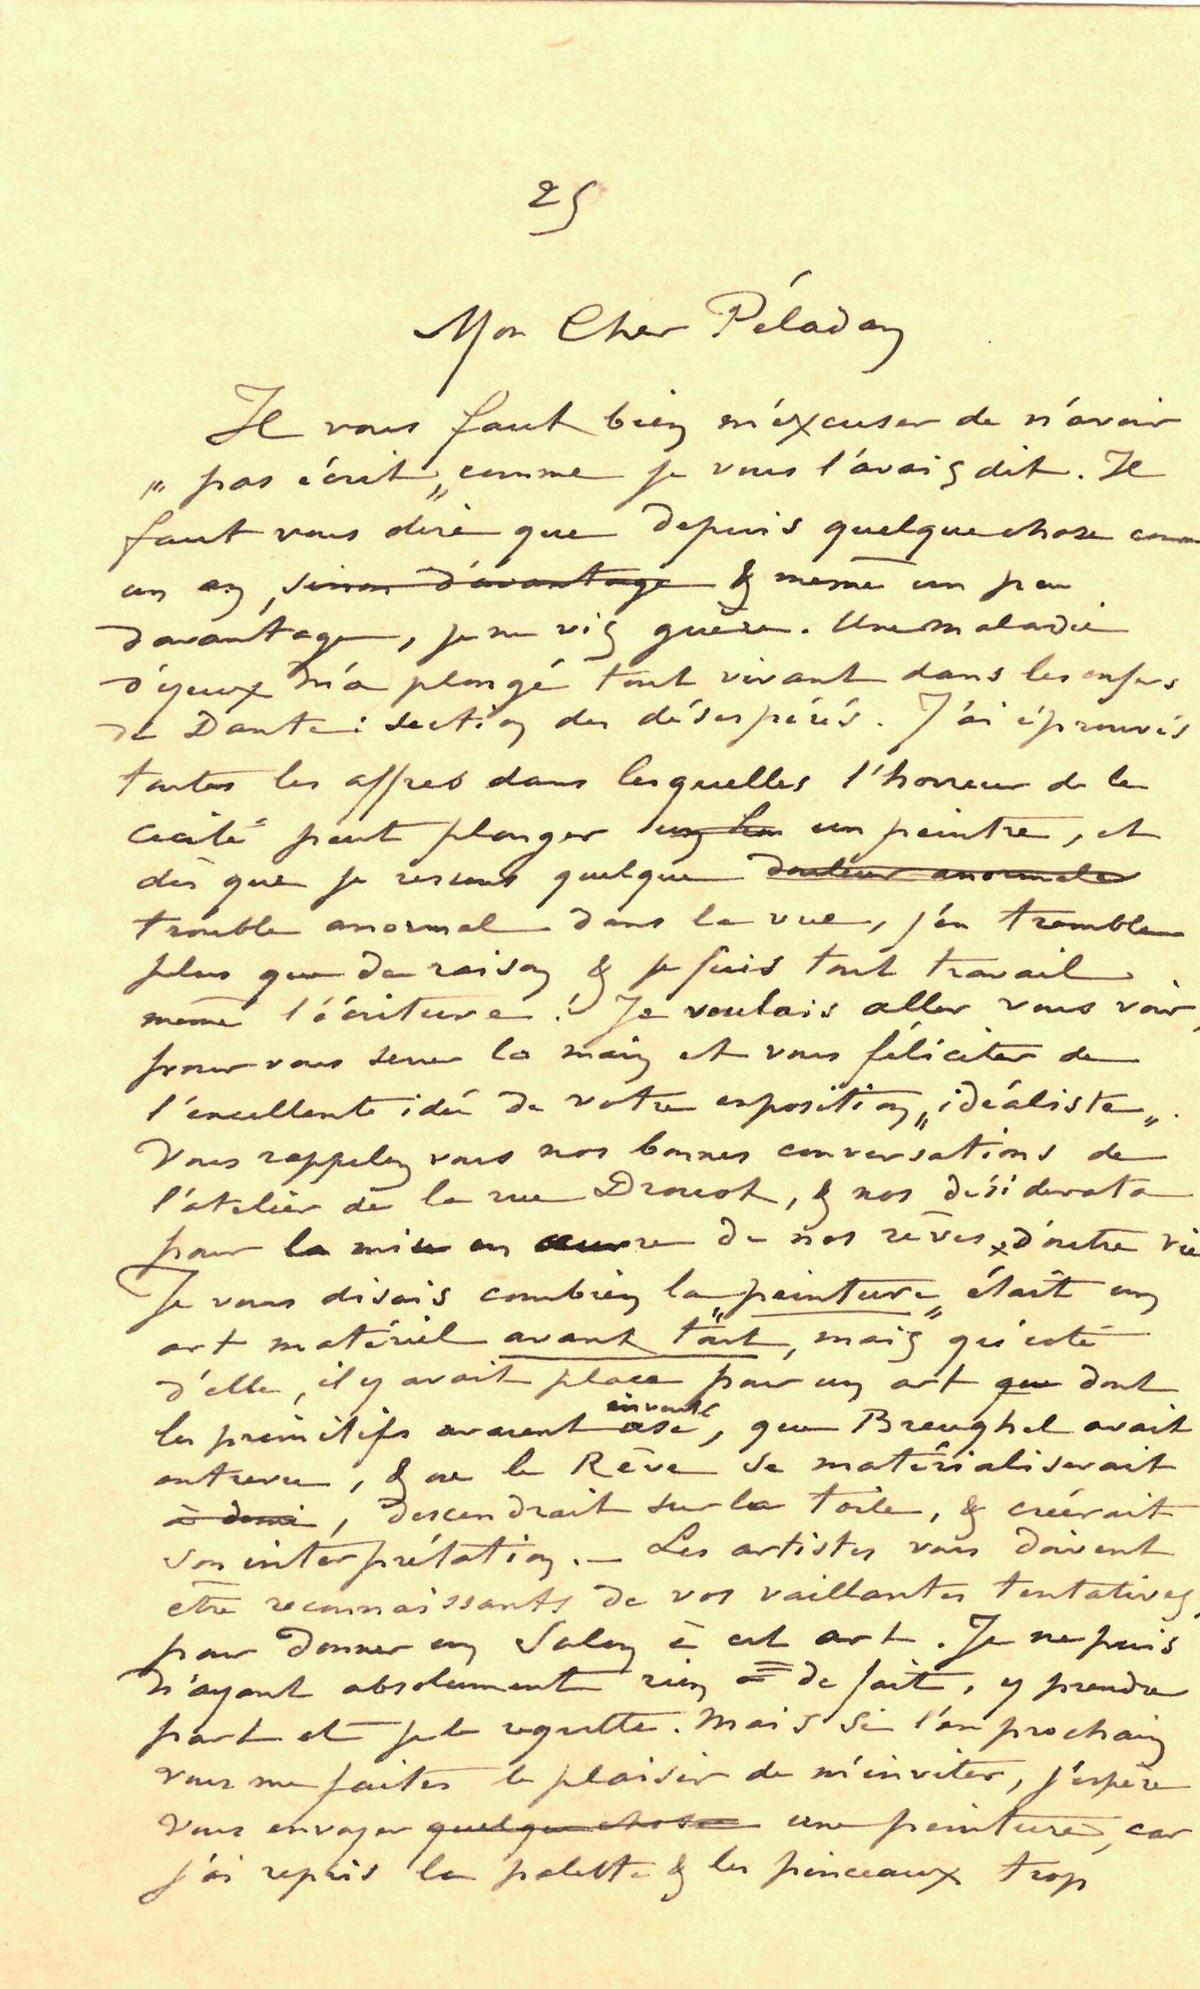 25
Mon Cher Péladan
Il vous faut bien m'éxcuser de n'avoir
„ pas écrit „ comme je vous l'avais dit. Il
faut vous dire que depuis quelque chose comme
un an, sinon d'avantage & même un peu
davantage, je ne vis guère. Une maladie
d'yeux m'a plongé tout vivant dans les enfers
de Dante : section des désespérés. J'ai éprouvés
toutes les affres dans lesquelles l'horreur de la
cécité peut plonger un peintre, et
dès que je ressens quelque douleur anormale
trouble anormal dans la vue, j'en tremble
plus que de raison & je fuis tout travail
même l'écriture ! Je voulais aller vous voir,
pour vous serrer la main et vous féliciter de
l'excellente idée de votre exposition „ idéaliste „.
Vous rappelez vous nos bonnes conversations de
l'atelier de la rue Drouot, & nos désiderata
pour la mise en œuvre de nos rêves d'outre vie
Je vous disais combien la „ peinture „ était un
art matériel avant tout, mais qu'coté
d'elle, il y avait place pour un art que dont
les primitifs avaient osé inventé, que Breughel avait
entrevu, & où le Rêve se matérialiserait
à demi, descendrait sur la toile, & créérait
son interprétation. — Les artistes vous doivent
être reconnaissants de vos vaillantes tentatives,
pour donner un Salon à cet art. Je ne puis
n'ayant absolument rien de fait, y prendre
part et je le regrette. Mais si l'an prochain
vous me faites le plaisir de m'inviter, j'espère
vous envoyer quelque chose une peinture, car
j'ai repris la palette & les pinceaux trop